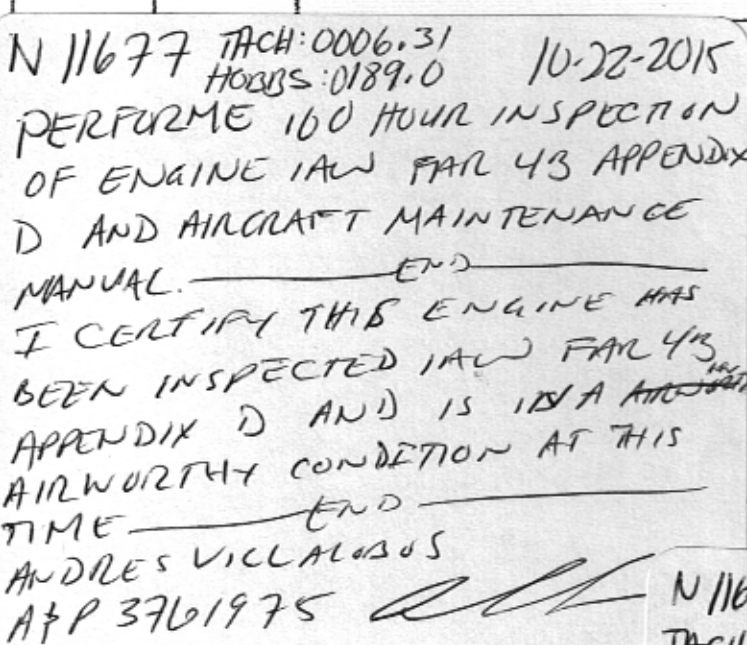 N 11677 TACH: 0006.31 10-22-2015
HOBBS: 0189.0
PERFORME 100 HOUR INSPECTION
OF ENGINE IAW FAR 43 APPENDIX
D AND AIRCRAFT MAINTENANCE
MANUAL. END
I CERTIFY THIS ENGINE HAS
BEEN INSPECTED IAW FAR 43
APPENDIX D AND IS IN A
AIRWORTHY CONDITION AT THIS
TIME END
ANDRES VILLALOBOS
A&P 3761975
N 116
TACH